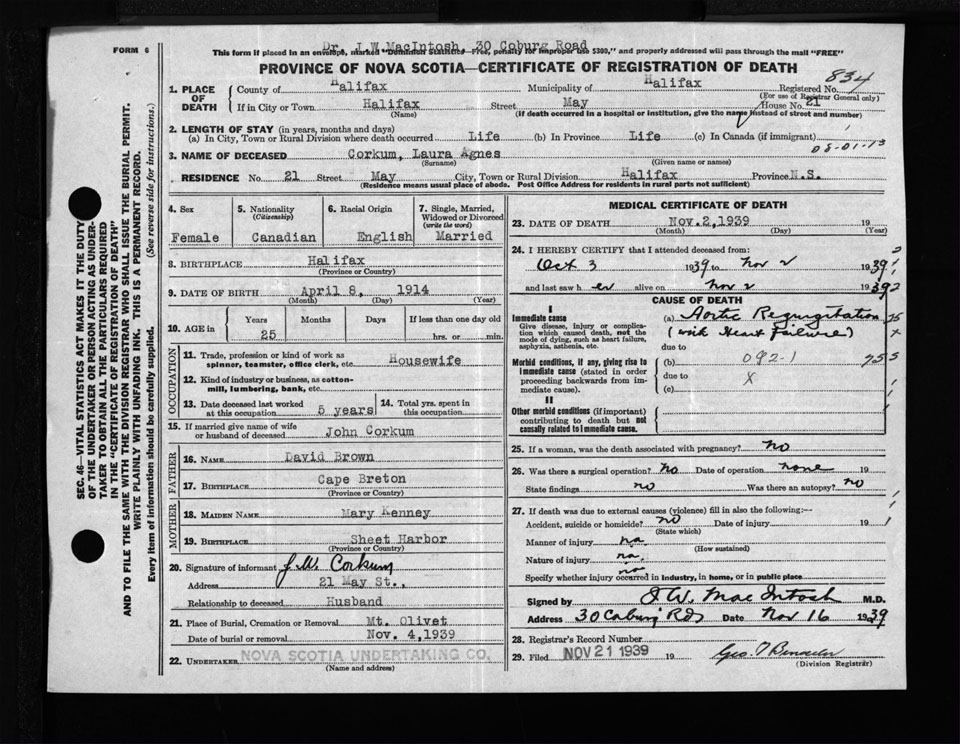 FORM 6
Dr. J.W.MacIntosh, 30 Coburg Road
This form if placed in an envelope, marked "Dominion Statistics—Free, penalty for improper use $300," and properly addressed will pass through the mail "FREE"
PROVINCE OF NOVA SCOTIA—CERTIFICATE OF REGISTRATION OF DEATH
834
1. PLACE OF DEATH
County of Halifax Municipality of Halifax Registered No.
(For use of Registrar General only)
If in City or Town Halifax Street May House No. 21
(Name) (If death occurred in a hospital or institution, give the name instead of street and number)
2. LENGTH OF STAY (in years, months and days)
(a) In City, Town or Rural Division where death occurred Life (b) In Province Life (c) In Canada (if immigrant)
08-01-13
3. NAME OF DECEASED Corkum, Laura Agnes
(Surname) (Given name or names)
RESIDENCE No. 21 Street May City, Town or Rural Division Halifax Province N.S.
(Residence means usual place of abode. Post Office Address for residents in rural parts not sufficient)
4. Sex
Female
5. Nationality
(Citizenship)
Canadian
6. Racial Origin
English
7. Single, Married, Widowed or Divorced
(write the word)
Married
8. BIRTHPLACE Halifax
(Province or Country)
9. DATE OF BIRTH April 8, 1914
(Month) (Day) (Year)
10. AGE in
Years Months Days If less than one day old
25 hrs. or min.
OCCUPATION
11. Trade, profession or kind of work as spinner, teamster, office clerk, etc. Housewife
12. Kind of industry or business, as cotton-mill, lumbering, bank, etc.
13. Date deceased last worked at this occupation 5 years
14. Total yrs. spent in this occupation
15. If married give name of wife or husband of deceased John Corkum
FATHER
16. NAME David Brown
17. BIRTHPLACE Cape Breton
(Province or Country)
MOTHER
18. MAIDEN NAME Mary Kenney
19. BIRTHPLACE Sheet Harbor
(Province or Country)
20. Signature of informant J.W. Corkum
Address 21 May St.,
Relationship to deceased Husband
21. Place of Burial, Cremation or Removal Mt. Olivet
Date of burial or removal Nov. 4,1939
22. UNDERTAKER NOVA SCOTIA UNDERTAKING CO.
(Name and address)
MEDICAL CERTIFICATE OF DEATH
23. DATE OF DEATH Nov.2,1939 19
(Month) (Day) (Year)
24. I HEREBY CERTIFY that I attended deceased from:
Oct 3 1939 to Nov 2 1939
and last saw h er alive on Nov 2 1939
CAUSE OF DEATH
I
Immediate cause
Give disease, injury or complication which caused death, not the mode of dying, such as heart failure, asphyxia, asthenia, etc.
(a) Aortic Regurgitation
(with Heart Failure)
due to
Morbid conditions, if any, giving rise to immediate cause (stated in order proceeding backwards from immediate cause).
(b) 092-1
due to X
(c)
II
Other morbid conditions (if important) contributing to death but not causally related to immediate cause.
25. If a woman, was the death associated with pregnancy? No
26. Was there a surgical operation? No Date of operation none 19
State findings no Was there an autopsy? no
27. If death was due to external causes (violence) fill in also the following:—
Accident, suicide or homicide? no Date of injury 19
(State which)
Manner of injury na
(How sustained)
Nature of injury na
na
Specify whether injury occurred in industry, in home, or in public place
Signed by J.W. MacIntosh M.D.
Address 30 Coburg Rd Date Nov 16 1939
28. Registrar's Record Number
29. Filed NOV 21 1939 19
(Division Registrar)
SEC. 46—VITAL STATISTICS ACT MAKES IT THE DUTY
OF THE UNDERTAKER OR PERSON ACTING AS UNDER-
TAKER TO OBTAIN ALL THE PARTICULARS REQUIRED
IN THE "CERTIFICATE OF REGISTRATION OF DEATH"
AND TO FILE THE SAME WITH THE DIVISION REGISTRAR WHO SHALL ISSUE THE BURIAL PERMIT.
WRITE PLAINLY WITH UNFADING INK. THIS IS A PERMANENT RECORD.
Every item of information should be carefully supplied. (See reverse side for instructions.)